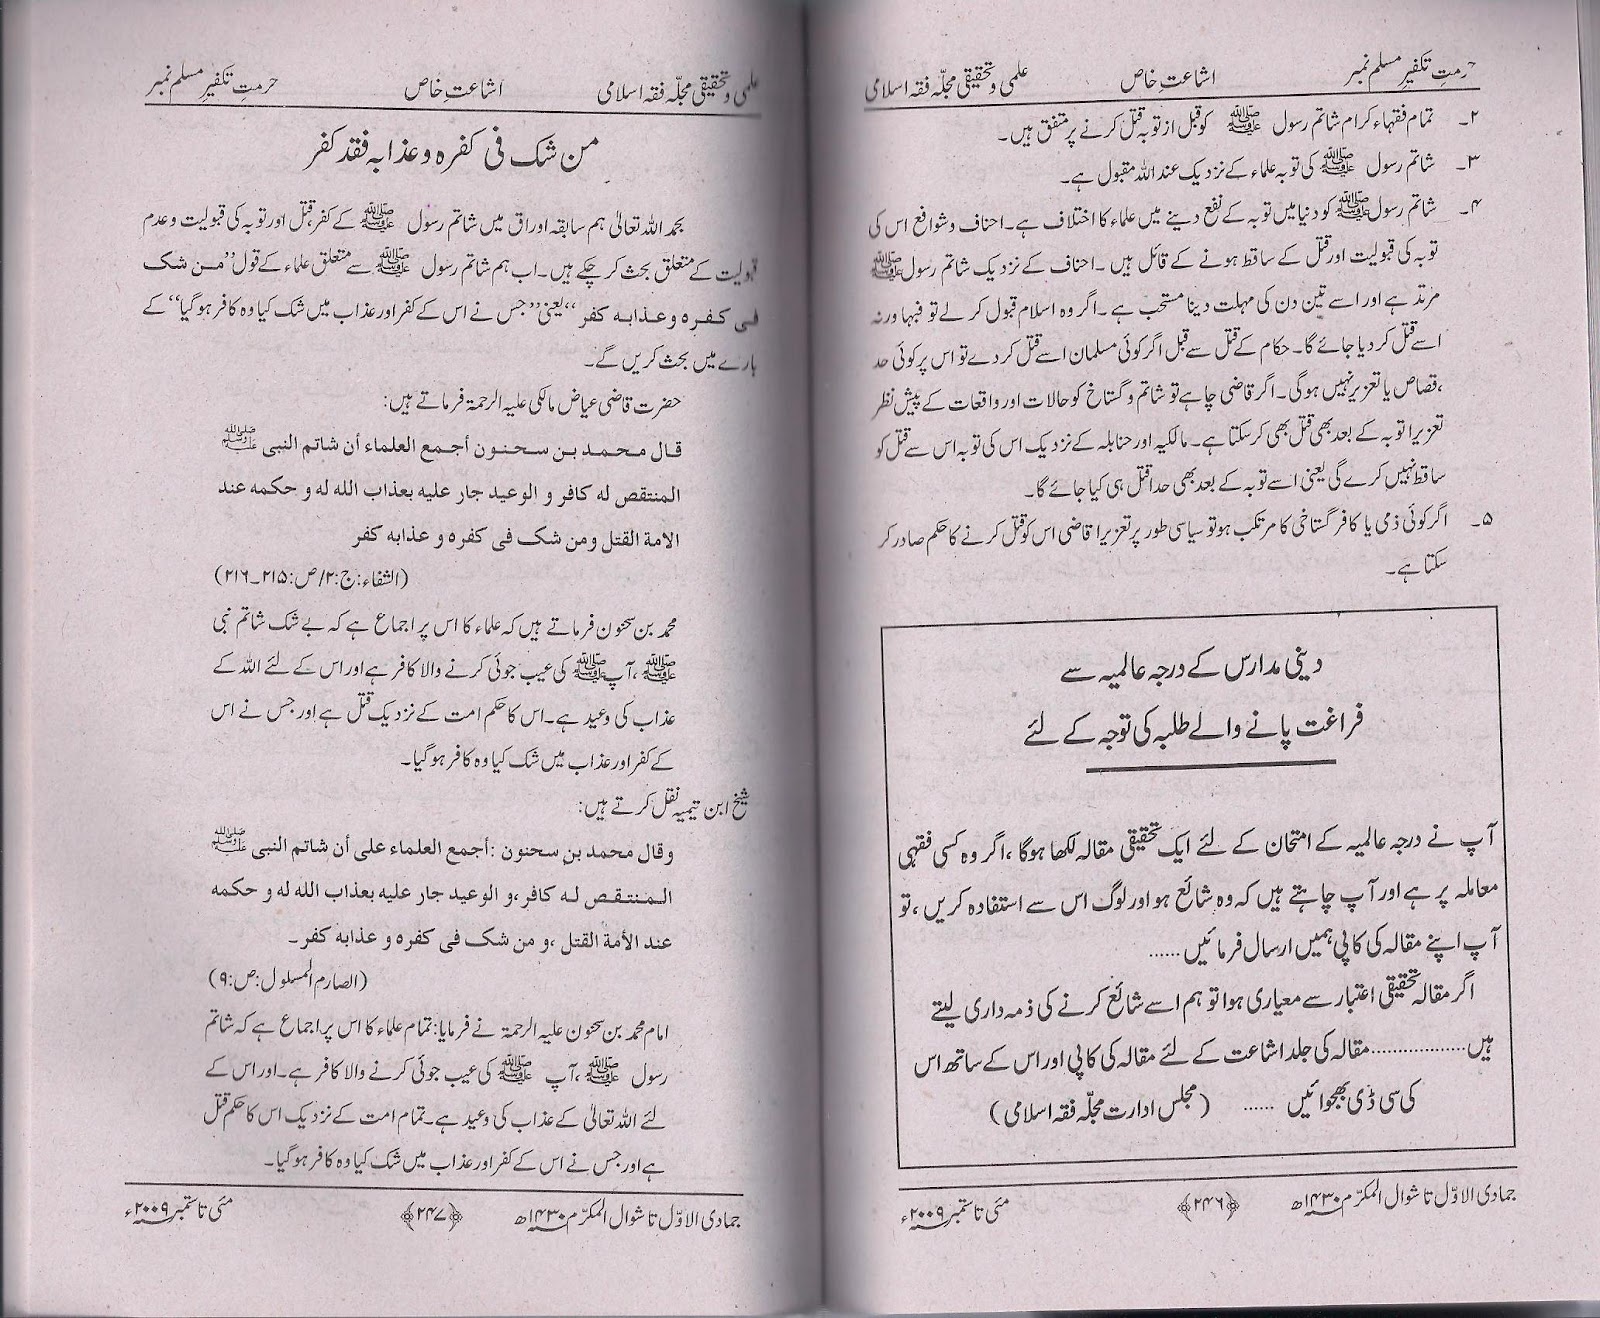 حرمتِ تکفیرِ مسلم نمبر اشاعت خاص علمی و تحقیقی مجلّہ فقہ اسلامی
۲۔ تمام فقہاء کرام شاتم رسول ﷺ کو قبل از توبہ قتل کرنے پر متفق ہیں۔
۳۔ شاتم رسول ﷺ کی توبہ علماء کے نزدیک عند اللہ مقبول ہے۔
۴۔ شاتم رسول ﷺ کو دنیا میں توبہ کے نفع دینے میں علماء کا اختلاف ہے۔ احناف وشوافع اس کی
توبہ کی قبولیت اور قتل کے ساقط ہونے کے قائل ہیں۔ احناف کے نزدیک شاتم رسول ﷺ
مرتد ہے اور اسے تین دن کی مہلت دینا مستحب ہے۔ اگر وہ اسلام قبول کر لے تو فبہا ورنہ
اسے قتل کر دیا جائے گا۔ حکام کے قتل سے قبل اگر کوئی مسلمان اسے قتل کر دے تو اس پر کوئی حد
،قصاص یا تعزیر نہیں ہوگی۔ اگر قاضی چاہے تو شاتم و گستاخ کو حالات اور واقعات کے پیش نظر
تعزیرا توبہ کے بعد بھی قتل بھی کر سکتا ہے۔ مالکیہ اور حنابلہ کے نزدیک اس کی توبہ اس سے قتل کو
ساقط نہیں کرے گی یعنی اسے توبہ کے بعد بھی حدا قتل ہی کیا جائے گا۔
۵۔ اگر کوئی ذمی یا کافر گستاخی کا مرتکب ہو تو سیاسی طور پر تعزیرا قاضی اس کو قتل کرنے کا حکم صادر کر
سکتا ہے۔
دینی مدارس کے درجہ عالمیہ سے
فراغت پانے والے طلبہ کی توجہ کے لئے
آپ نے درجہ عالمیہ کے امتحان کے لئے ایک تحقیقی مقالہ لکھا ہوگا ،اگر وہ کسی فقہی
معاملہ پر ہے اور آپ چاہتے ہیں کہ وہ شائع ہو اور لوگ اس سے استفادہ کریں ،تو
آپ اپنے مقالہ کی کاپی ہمیں ارسال فرمائیں ......
اگر مقالہ تحقیقی اعتبار سے معیاری ہوا تو ہم اسے شائع کرنے کی ذمہ داری لیتے
ہیں.................. مقالہ کی جلد اشاعت کے لئے مقالہ کی کاپی اور اس کے ساتھ اس
کی سی ڈی بھجوائیں ...... (مجلس ادارت مجلّہ فقہ اسلامی)
جمادی الاوّل تا شوال المکرّم ۱۴۳۰ھ ﴿۲۴۶﴾ مئی تا ستمبر ۲۰۰۹ء
علمی و تحقیقی مجلّہ فقہ اسلامی اشاعتِ خاص حرمتِ تکفیرِ مسلم نمبر
من شک فی کفرہ و عذابہ فقد کفر
بحمد اللہ تعالیٰ ہم سابقہ اوراق میں شاتم رسول ﷺ کے کفر،قتل اور توبہ کی قبولیت وعدم
قبولیت کے متعلق بحث کر چکے ہیں۔ اب ہم شاتم رسول ﷺ سے متعلق علماء کے قول ’’من شک
فی کفرہ وعذابہ کفر ‘‘یعنی ’’جس نے اس کے کفر اور عذاب میں شک کیا وہ کافر ہوگیا‘‘ کے
بارے میں بحث کریں گے۔
حضرت قاضی عیاض مالکی علیہ الرحمۃ فرماتے ہیں:
قال محمد بن سحنون أجمع العلماء أن شاتم النبی ﷺ
المنتقص له کافر و الوعید جار علیه بعذاب الله له و حکمه عند
الامة القتل ومن شک فی کفره و عذابه کفر
(الشفاء:ج:۲/ص:۲۱۵۔۲۱۶)
محمد بن سحنون فرماتے ہیں کہ علماء کا اس پر اجماع ہے کہ بے شک شاتم نبی
ﷺ ،آپ ﷺ کی عیب جوئی کرنے والا کافر ہے اور اس کے لئے اللہ کے
عذاب کی وعید ہے۔ اس کا حکم امت کے نزدیک قتل ہے اور جس نے اس
کے کفر اور عذاب میں شک کیا وہ کافر ہوگیا۔
شیخ ابن تیمیہ نقل کرتے ہیں:
وقال محمد بن سحنون :أجمع العلماء علی أن شاتم النبی ﷺ
المنتقص له کافر ،و الوعید جار علیه بعذاب الله له و حکمه
عند الأمة القتل ،و من شک فی کفره و عذابه کفر۔
(الصارم المسلول:ص:۹)
امام محمد بن سحنون علیہ الرحمۃ نے فرمایا: تمام علماء کا اس پر اجماع ہے کہ شاتم
رسول ﷺ ،آپ ﷺ کی عیب جوئی کرنے والا کافر ہے۔ اور اس کے
لئے اللہ تعالیٰ کے عذاب کی وعید ہے۔ تمام امت کے نزدیک اس کا حکم قتل
ہے اور جس نے اس کے کفر اور عذاب میں شک کیا وہ کافر ہوگیا۔
جمادی الاوّل تا شوال المکرّم ۱۴۳۰ھ ﴿۲۴۷﴾ مئی تا ستمبر ۲۰۰۹ء